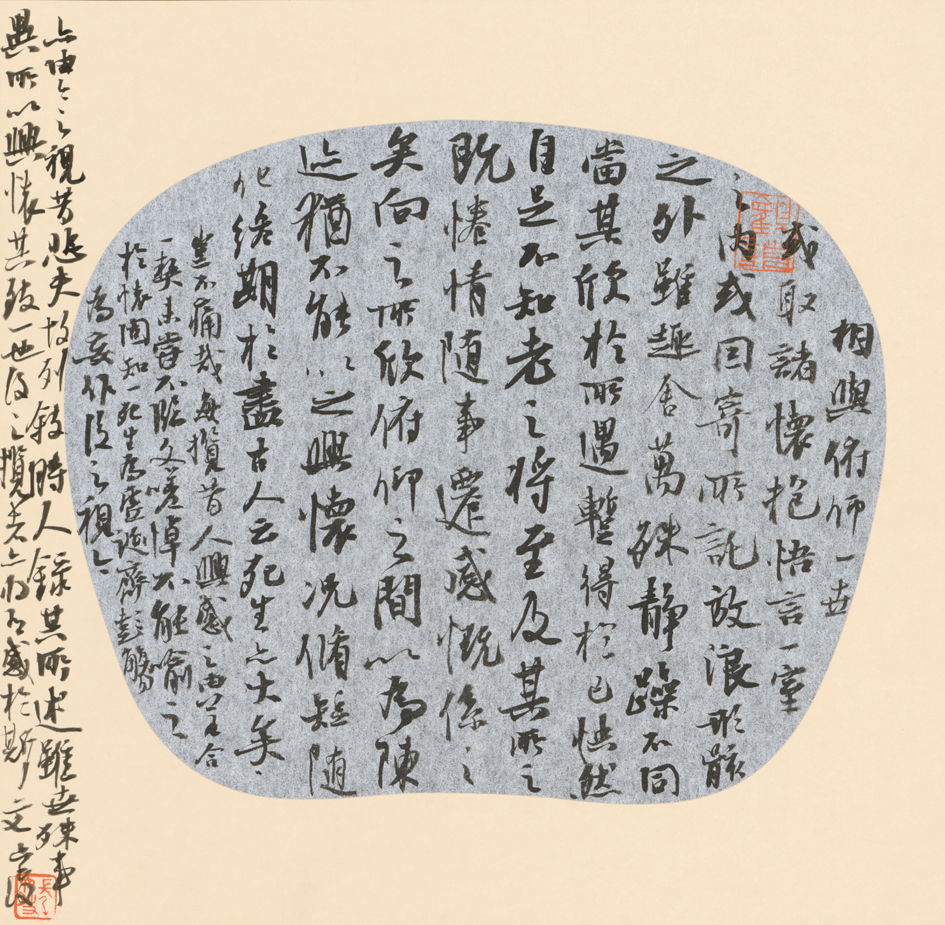 相與俯仰一世
或取諸懷抱悟言一室
之內或因寄所託放浪形骸
之外雖趣舍萬殊靜躁不同
當其欣於所遇暫得於己怏然
自足不知老之將至及其所之
既惓情随事遷感慨係之
矣向之所欣俯仰之間以為陳
迹猶不能以之興懷況脩短随
化終期於盡古人云死生亦大矣
豈不痛哉每攬昔人興感之由若合
一契未嘗不臨文嗟悼不能喻之
於懷固知一死生為虛誕齊彭殤
為妄作後之視今
亦由今之視昔悲夫故列敘時人錄其所述雖世殊事
異所以興懷其致一也後之攬者亦將有感於斯文